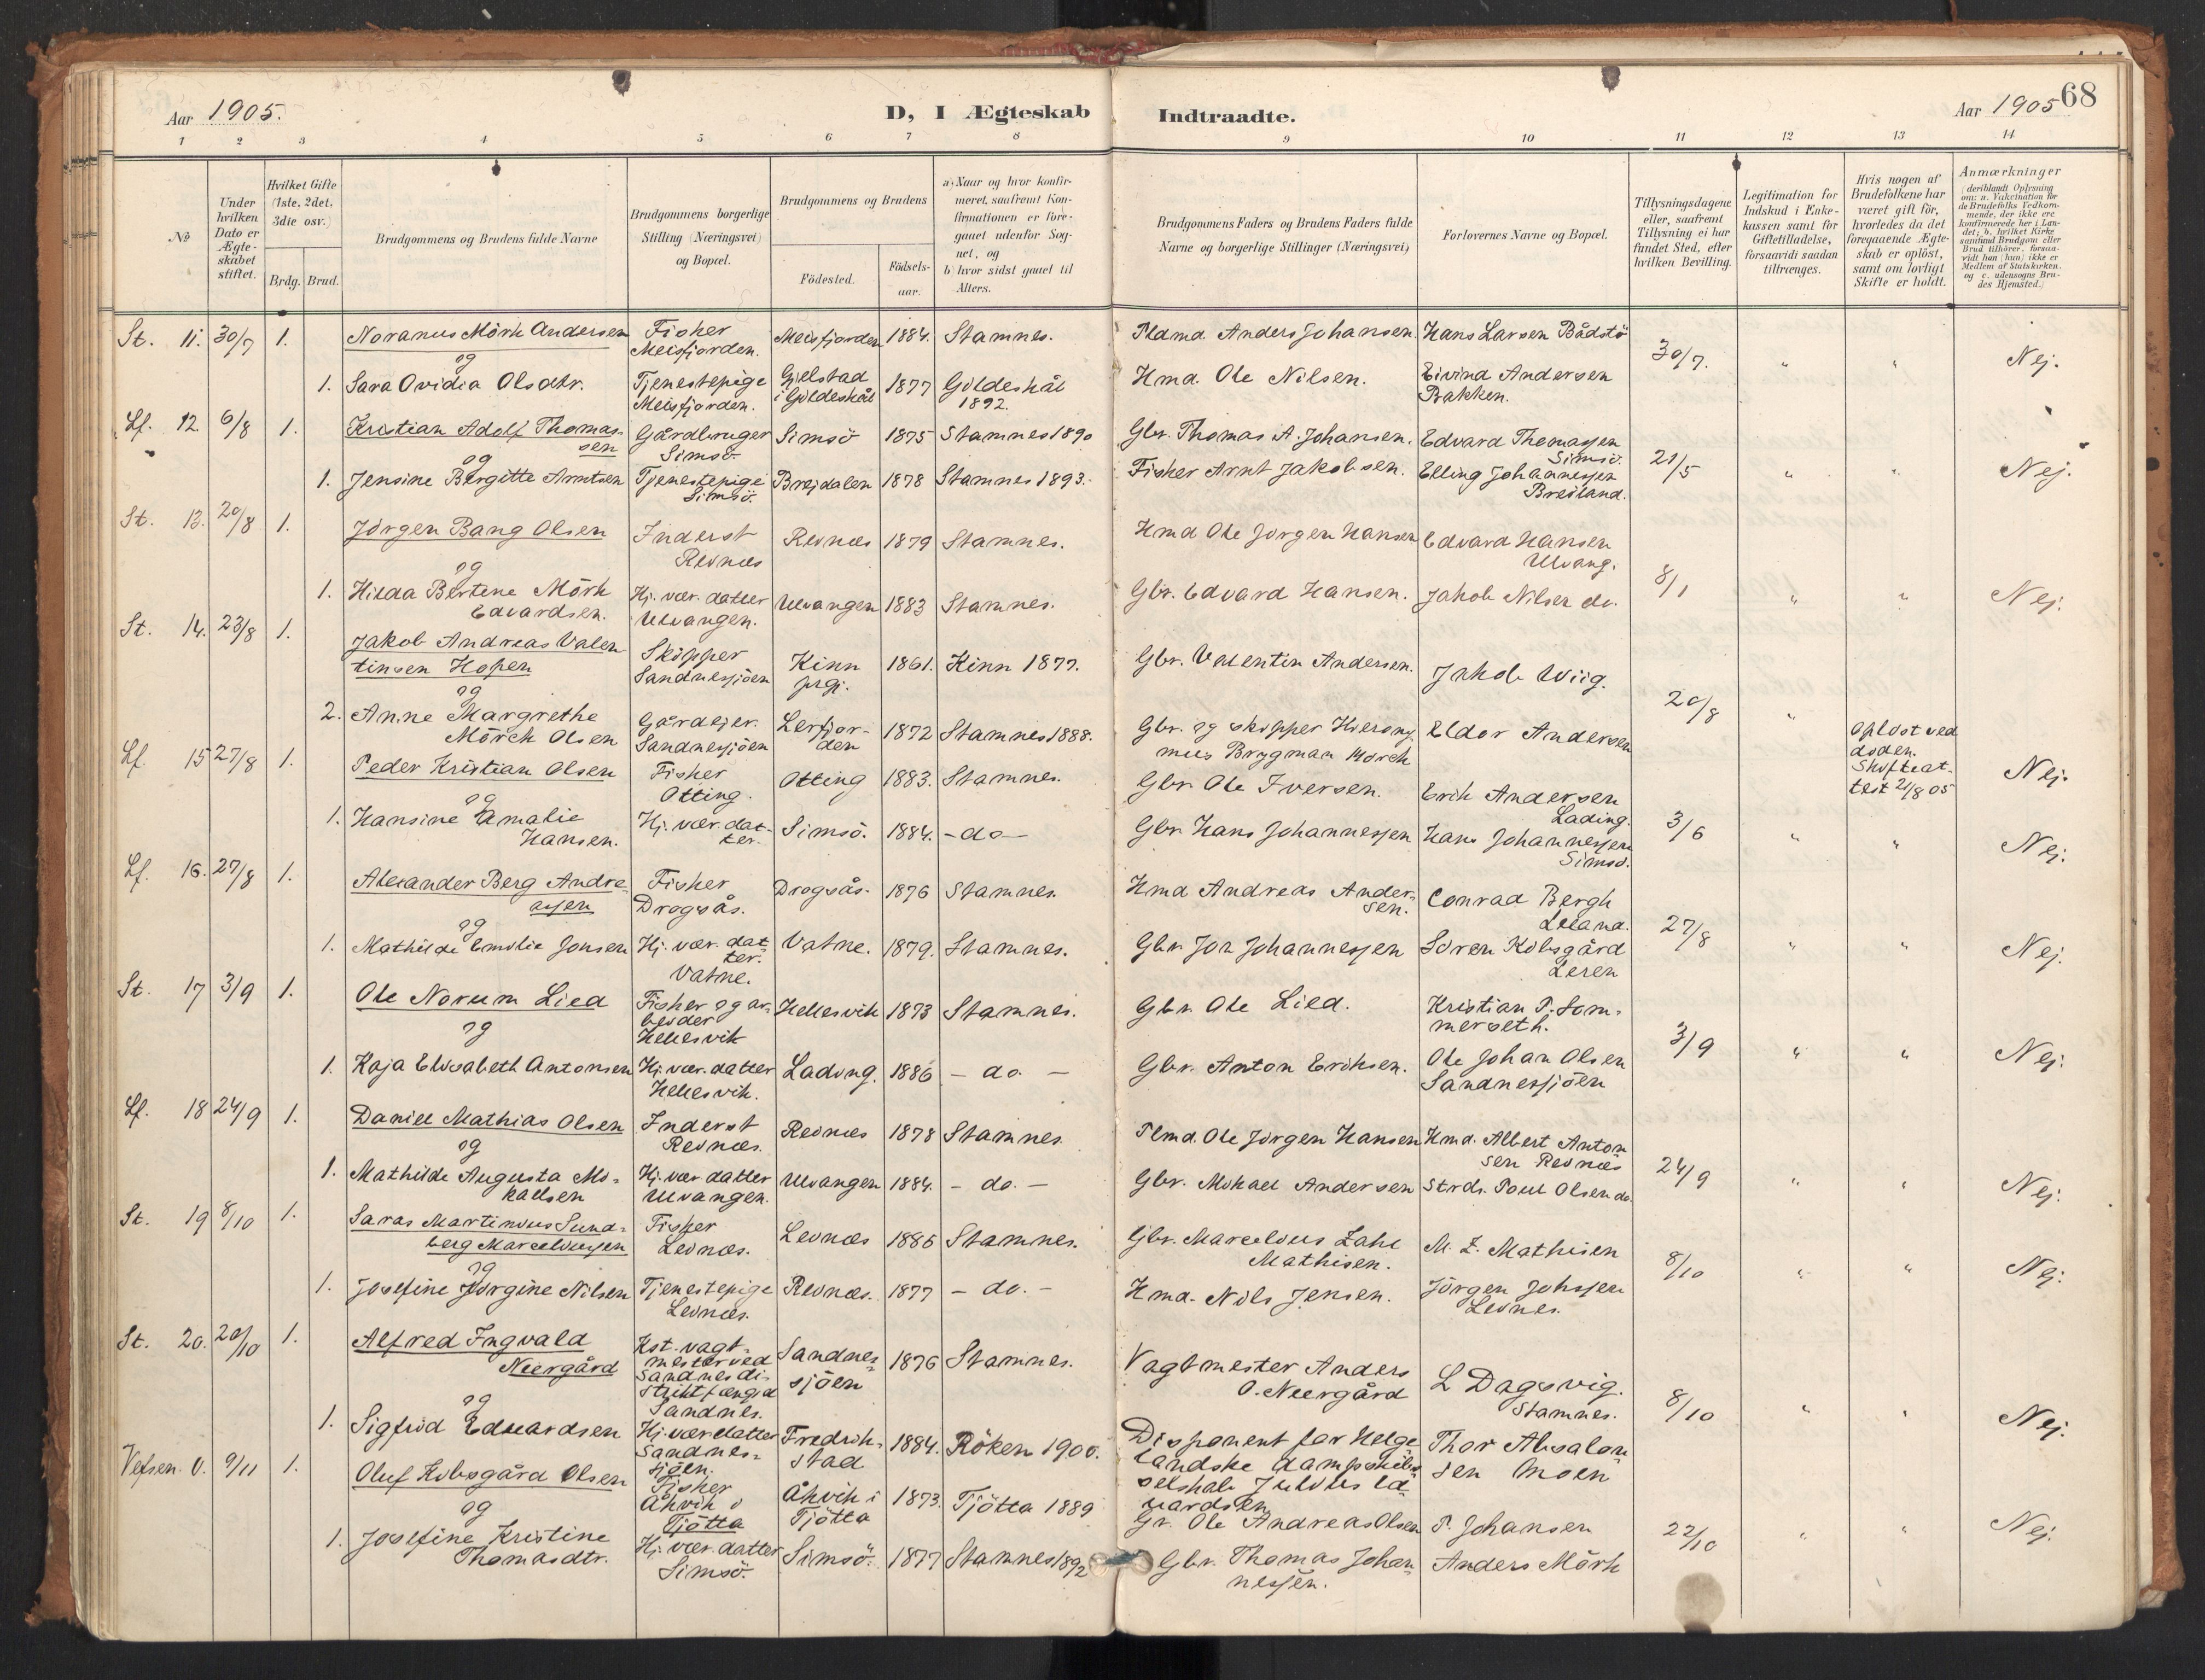 Aar 1905.
D, I Ægteskab
Indtraadte.
Aar 1905
68
1 2 3 4 5 6 7 8 9 10 11 12 13 14
No
Under
hvilken
Dato er
Ægte-
skabet
stiftet.
Hvilket Gifte
(1ste, 2det,
3die osv.)
Brdg. Brud.
Brudgommens og Brudens fulde Navne
Brudgommens borgerlige
Stilling (Næringsvei)
og Bopæl.
Brudgommens og Brudens
Födested.
Födsels-
aar.
a) Naar og hvor konfir-
meret, saafremt Kon-
firmationen er fore-
gaaet udenfor Sog-
net, og
b) hvor sidst gaaet til
Alters.
Brudgommens Faders og Brudens Faders fulde
Navne og borgerlige Stillinger (Næringsvei)
Forlovernes Navne og Bopæl.
Tillysningsdagene
eller, saafremt
Tillysning ei har
fundet Sted, efter
hvilken Bevilling.
Legitimation for
Indskud i Enke-
kassen samt for
Giftetilladelse,
forsaavidt saadan
tiltrænges.
Hvis nogen af
Brudefolkene har
været gift för,
hvorledes da det
foregaaende Ægte-
skab er oplöst,
samt om lovligt
Skifte er holdt.
Anmærkninger
(deriblandt Oplysning
om: a. Vakcination for
de Brudefolks Vedkom-
mende, der ikke ere
konfirmerede her i Lan-
det; b. hvilket Kirke
samfund Brudgom eller
Brud tilhörer, forsaa-
vidt han (hun) ikke er
Medlem af Statskirken.
og c. udensogns Bru-
des Hjemsted.)
St. 11. 30/7 1. Noranus Mörk Andersen Fisker Meisfjorden 1884. Stamnes. Pldmd. Anders Johansen. Hans Larsen Bådstö
Meisfjorden.
og 30/7. " " Nej.
1. Sara Ovidia Olsdtr. Tjenestepige Gjelstad 1877 Gildeskål Hmd. Ole Nilsen. Eivind Andersen
Meisfjorden. i Gildeskål 1892. Bakken.
Lf. 12. 6/8 1. Kristian Adolf Thomas- Gårdbruger Simsö 1875 Stamnes 1890 Gbr. Thomas A. Johansen. Edvard Thomassen
sen Simsö. Simsö.
og 21/5 " " Nej.
1. Jensine Birgitte Arntsen Tjenestepige Breidalen 1878 Stamnes 1893. Fisker Arnt Jakobsen. Elling Johannessen
Simsö. Breiland.
St. 13. 20/8 1. Jörgen Bang Olsen Inderst Reinæs 1879 Stamnes. Hmd Ole Jörgen Hansen Edvard Hansen
Reinæs Ulvang.
og 8/1 " " Nej.
1. Hilda Bertine Mörk Hj. vær. datter Ulvangen 1883 Stamnes. Gbr. Edvard Hansen. Jakob Nilsen do.
Edvardsen. Ulvangen.
St. 14. 23/8 1. Jakob Andreas Valen- Skipper Kinn 1861. Kinn 1877. Gbr. Valentin Andersen. Jakob Wiig.
tinsen Hopen Sandnessjöen prgj.
og 20/8 "
2. Anne Margrethe Gårdejer. Leirfjor- 1872 Stamnes 1888. Gbr. og skipper Hierony- Eldor Andersen
Mörch Olsen Sandnessjöen den mus Brygman Morch
Oplöst ved
döden.
Skifteat-
test 21/8 05 Nej.
Lf. 15 27/8 1. Peder Kristian Olsen Fisker Otting 1883. Stamnes. Gbr. Ole Iversen. Erik Andersen
Otting. Leding.
og 3/6 " " Nej.
1. Hansine Amalie Hj. vær. dat- Simsö. 1884. – do – Gbr. Hans Johannessen Hans Johannessen
Hansen. ter. Simsö.
Lf. 16. 27/8 1. Alexander Berg Andre- Fisker Drogsås. 1876 Stamnes. Hmd Andreas Ander- Conrad Bergh
assen Drogsås. sen. Leland.
og 27/8 " " Nej.
1. Mathilde Emilie Jonsen Hj. vær. dat- Vatne. 1879. Stamnes. Gbr. Jon Johannessen Sören Kibsgård
ter. Leren
Vatne.
St. 17 3/9 1. Ole Norum Lied Fisker og ar- Hellesvik 1873 Stamnes. Gbr. Ole Lied. Kristian P. Som-
beider merseth.
og Hellesvik 3/9 " " Nej.
1. Kaja Elisabeth Antonsen Hj. vær. datter Lading. 1886 – do. – Gbr. Anton Eriksen. Ole Johan Olsen
Hellesvik. Sandnessjöen
Lf. 18 24/9 1. Daniel Mathias Olsen Inderst Reinæs 1878 Stamnes. Plmd. Ole Jörgen Hansen Hmd. Albert Anton-
Reinæs. sen Reinæs
og 24/9 " " Nej.
1. Mathilde Augusta Mi- Hj. vær. datter Ulvangen 1884. – do. – Gbr. Mikael Andersen Strds. Poul Olsen do.
kalsen Ulvangen.
St. 19 8/10 1. Saras Martinius Sund- Fisker Leinæs 1886 Stamnes. Gbr. Marcelius Zahl M. Z. Mathisen
berg Marceliussen Leinæs. Mathisen.
og 8/10 " " Nej.
1. Josefine Jörgine Nilsen Tjenestepige Reinæs. 1877 – do. – Hmd. Nils Jensen. Jörgen Johssen
Leinæs. Leines.
St. 20. 20/10 1. Alfred Ingvald Kst. vagt- Sandnes- 1876 Stamnes. Vagtmester Anders L Dagsvig.
Neergård mester ved sjöen O. Neergård Stamnes.
Sandnes di-
striktsfængsel
og Sandnes. 8/10 " " Nej.
1. Sigfrid Edvardsen Hj. vær datter Fredrik- 1884. Röken 1900. Disponent for Helge- Thor Absalon-
Sandnes- stad landske dampskibs- sen Moen
sjöen. selskab Julius Ed-
vardsen
Vefsen 0. 9/11 1. Oluf Kibsgård Olsen Fisker Åkvik i 1873. Tjötta 1889 Gr. Ole Andreas Olsen P. Johansen
Åkvik i Tjötta
og Tjötta 22/10 " " Nej.
1. Josefine Kristine Hj. vær. datter Simsö. 1877 Stamnes 1892 Gbr. Thomas Johan- Anders Mörk
Thomasdtr. Simsö. nessen.